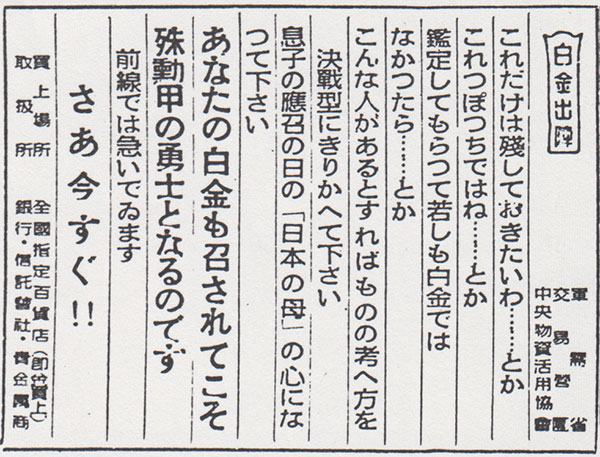 白金出陣
軍需省
交易營團
中央物資活用協會
これだけは殘しておきたいわ………とか
これつぽつちではね……とか
鑑定してもらつて若しも白金では
なかつたら………とか
こんな人があるとすればものの考へ方を
決戰型にきりかへて下さい
息子の應召の日の「日本の母」の心にな
つて下さい
あなたの白金も召されてこそ
殊勳甲の勇士となるのです
前線では急いでゐます
さあ今すぐ!!
買上場所 全國指定百貨店(即答買上)
取扱所 銀行・信託會社・貴金屬商